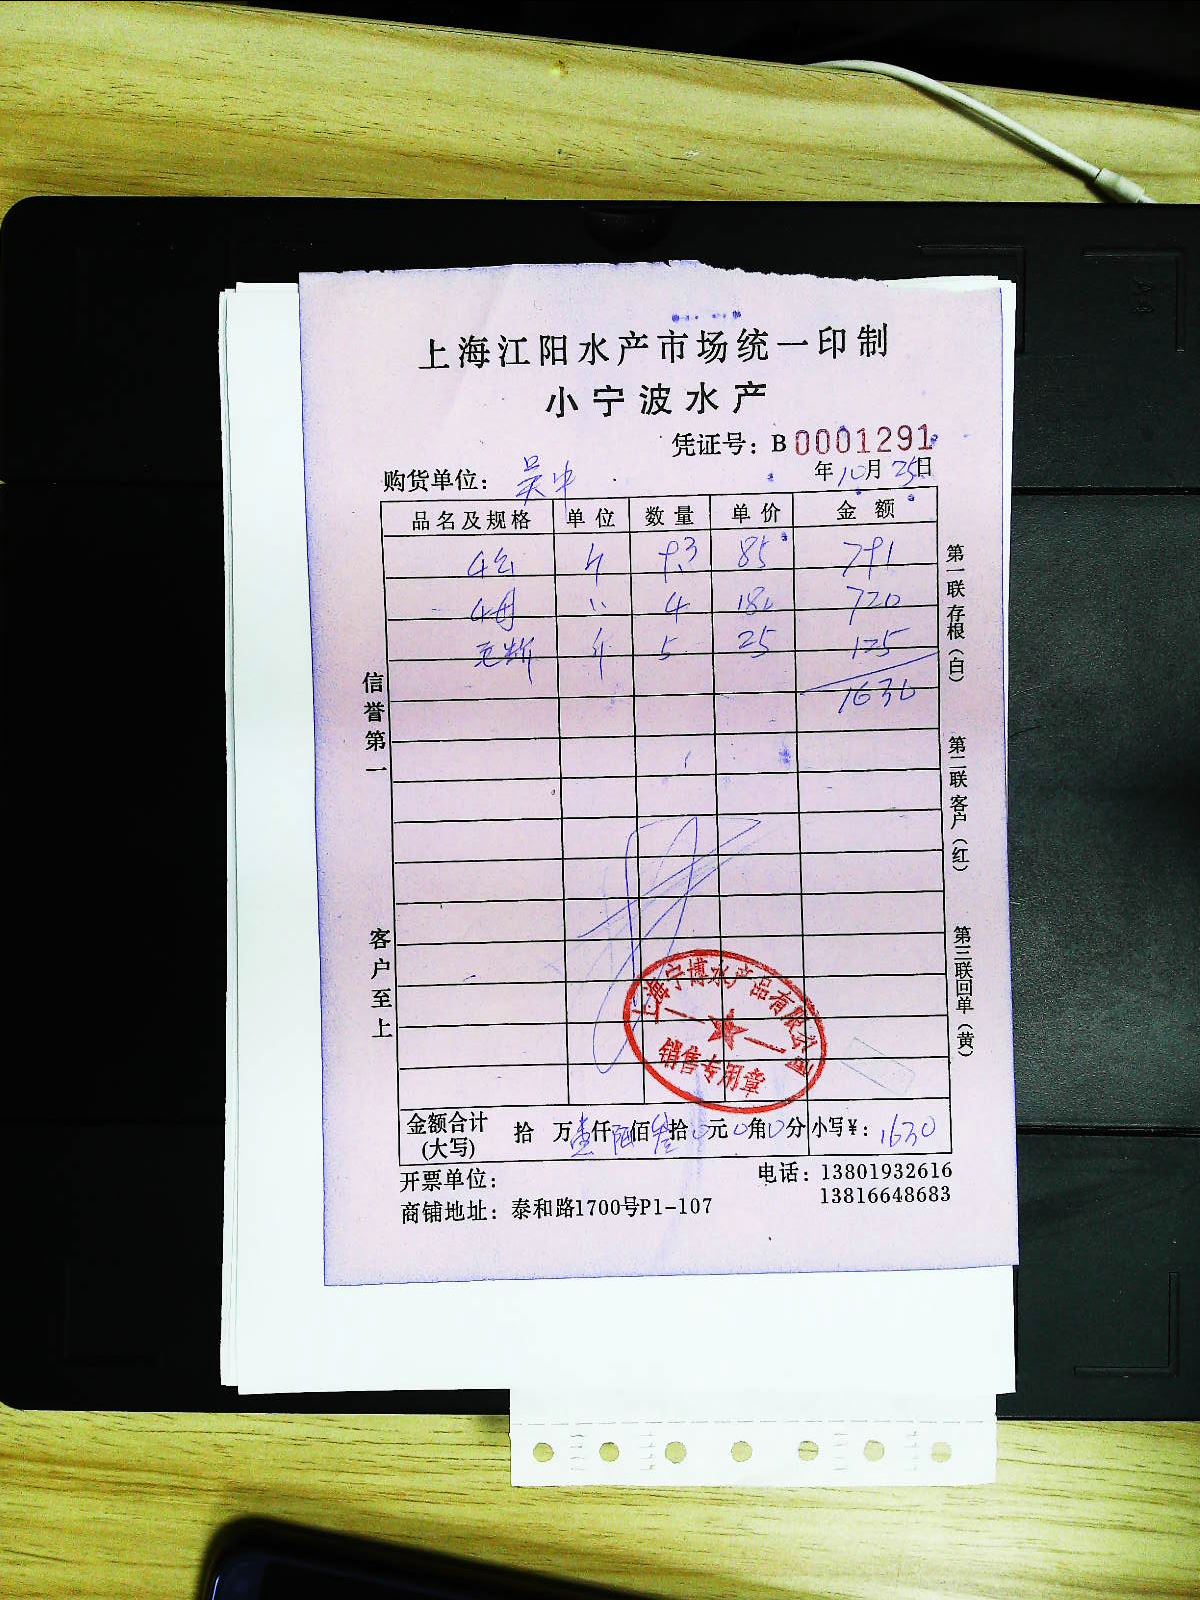 上海江阳水产市场统一印制
小宁波水产
凭证号：B 0001291
年10月25日
购货单位：吴中
品名及规格 单位 数量 单价 金额
4公 斤 9.3 85 791
4母 〃 4 180 720
斤 5 25 125
1636
信誉第一
客户至上
第一联存根（白）
第二联客户（红）
第三联回单（黄）
上海宁博水产品有限公司
销售专用章
金额合计(大写) 拾 万壹仟陆佰叁拾0元0角0分 小写¥：1630
开票单位： 电话：13801932616
13816648683
商铺地址：泰和路1700号P1-107